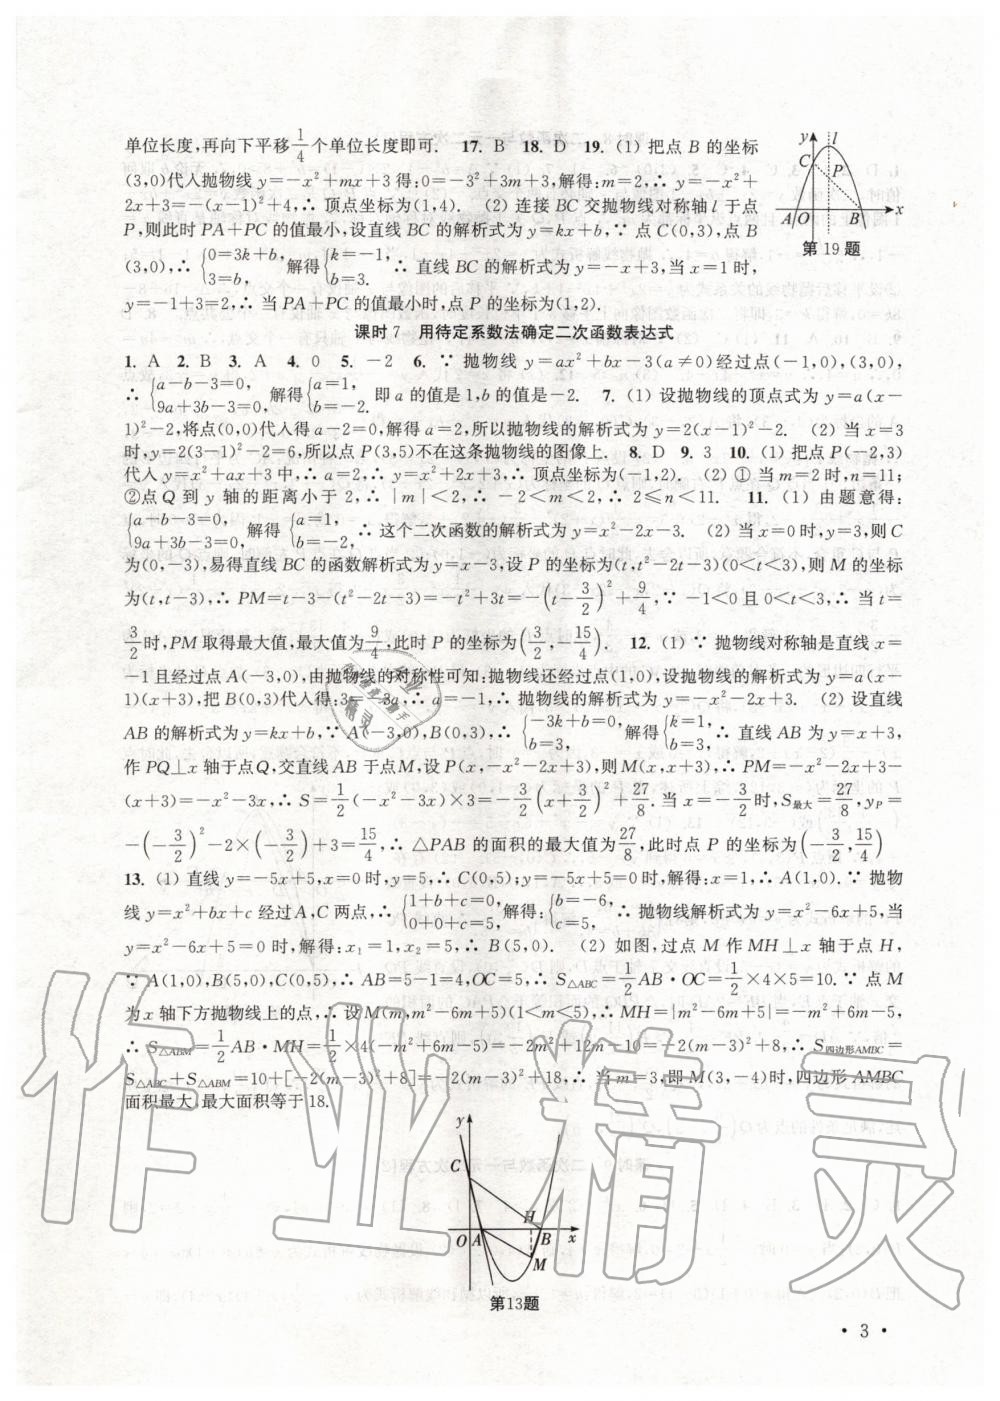 单位长度,再向下平移1/4个单位长度即可. 17. B 18. D 19. (1) 把点 B 的坐标
(3,0)代入抛物线 y=-x²+mx+3得:0=-3²+3m+3,解得:m=2,∴ y=-x²+
2x+3=-(x-1)²+4,∴ 顶点坐标为(1,4). (2) 连接 BC 交抛物线对称轴 l 于点
P,则此时 PA+PC 的值最小,设直线 BC 的解析式为 y=kx+b,∵ 点 C(0,3),点 B
(3,0),∴ {0=3k+b, 3=b, 解得{k=-1, b=3, ∴ 直线 BC 的解析式为 y=-x+3,当 x=1 时,
y=-1+3=2,∴ 当 PA+PC 的值最小时,点 P 的坐标为(1,2).
y l C P A O B x
第 19 题
课时 7 用待定系数法确定二次函数表达式
1. A 2. B 3. A 4. 0 5. -2 6. ∵ 抛物线 y=ax²+bx-3(a≠0)经过点(-1,0),(3,0),
∴ {a-b-3=0, 9a+3b-3=0, 解得{a=1, b=-2. 即 a 的值是 1,b 的值是-2. 7. (1) 设抛物线的顶点式为 y=a(x-
1)²-2,将点(0,0)代入得 a-2=0,解得 a=2,所以抛物线的解析式为 y=2(x-1)²-2. (2) 当 x=3
时,y=2(3-1)²-2=6,所以点 P(3,5)不在这条抛物线的图像上. 8. D 9. 3 10. (1) 把点 P(-2,3)
代入 y=x²+ax+3 中,∴ a=2,∴ y=x²+2x+3,∴ 顶点坐标为(-1,2). (2) ① 当 m=2 时,n=11;
②点 Q 到 y 轴的距离小于 2,∴ |m|<2,∴ -2<m<2,∴ 2≤n<11. 11. (1) 由题意得:
{a-b-3=0, 9a+3b-3=0, 解得 {a=1, b=-2, ∴ 这个二次函数的解析式为 y=x²-2x-3. (2) 当 x=0 时,y=3,则 C
为(0,-3),易得直线 BC 的函数解析式为 y=x-3,设 P 的坐标为(t,t²-2t-3)(0<t<3),则 M 的坐标
为(t,t-3),∴ PM=t-3-(t²-2t-3)=-t²+3t=-(t-3/2)²+9/4,∵ -1<0 且 0<t<3,∴ 当 t=
3/2时,PM 取得最大值,最大值为9/4,此时 P 的坐标为(3/2,-15/4). 12. (1) ∵ 抛物线对称轴是直线 x=
-1 且经过点 A(-3,0),由抛物线的对称性可知:抛物线还经过点(1,0),设抛物线的解析式为 y=a(x-
1)(x+3),把 B(0,3)代入得:3=-3a,∴ a=-1,∴ 抛物线的解析式为 y=-x²-2x+3. (2) 设直线
AB 的解析式为 y=kx+b,∵ A(-3,0),B(0,3),∴ {-3k+b=0, b=3, 解得{k=1, b=3, ∴ 直线 AB 为 y=x+3,
作 PQ⊥x 轴于点 Q,交直线 AB 于点 M,设 P(x,-x²-2x+3),则 M(x,x+3),∴ PM=-x²-2x+3-
(x+3)=-x²-3x,∴ S=1/2(-x²-3x)×3=-3/2(x+3/2)²+27/8.当 x=-3/2时,S最大=27/8,yP=
-(-3/2)²-2×(-3/2)+3=15/4,∴ △PAB 的面积的最大值为27/8,此时点 P 的坐标为(-3/2,15/4)
13. (1) 直线 y=-5x+5,x=0 时,y=5,∴ C(0,5);y=-5x+5=0 时,解得:x=1,∴ A(1,0). ∵ 抛物
线 y=x²+bx+c 经过 A,C 两点,∴ {1+b+c=0, 0+0+c=5, 解得:{b=-6, c=5, ∴ 抛物线解析式为 y=x²-6x+5,当
y=x²-6x+5=0 时,解得:x₁=1,x₂=5,∴ B(5,0). (2) 如图,过点 M 作 MH⊥x 轴于点 H,
∵ A(1,0),B(5,0),C(0,5),∴ AB=5-1=4,OC=5,∴ S△ABC=1/2AB·OC=1/2×4×5=10.∵ 点 M
为 x 轴下方抛物线上的点,∴ 设 M(m,m²-6m+5)(1<m<5),∴ MH=|m²-6m+5|=-m²+6m-5,
∴ S△ABM=1/2AB·MH=1/2×4(-m²+6m-5)=-2m²+12m-10=-2(m-3)²+8,∴ S四边形AMBC=
S△ABC+S△ABM=10+[-2(m-3)²+8]=-2(m-3)²+18,∴ 当 m=3,即 M(3,-4)时,四边形 AMBC
面积最大,最大面积等于 18.
y C H O A B x M
第13题
· 3 ·
作业精灵